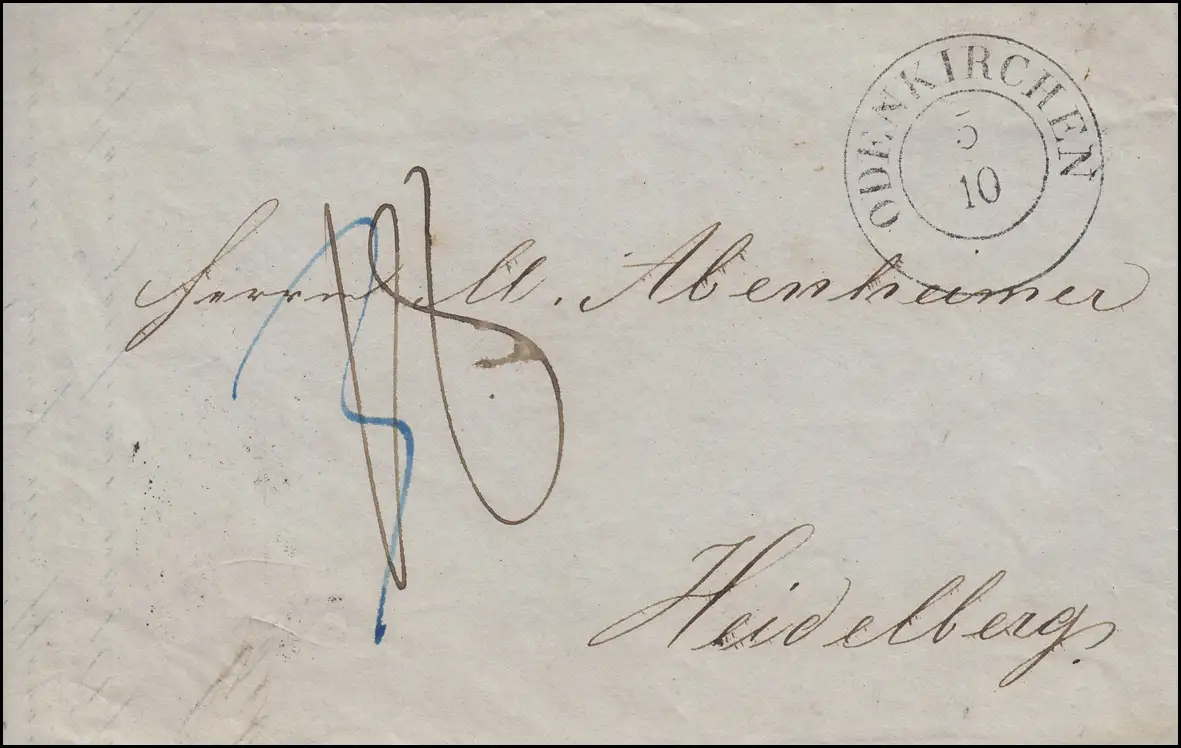 ODENKIRCHEN
5
10
Herrn M. Abenheimer
Heidelberg.